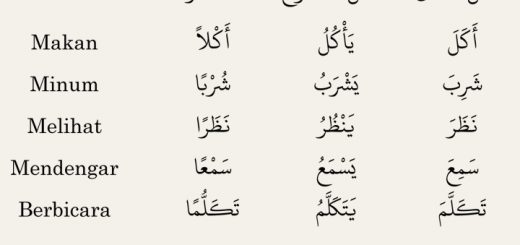 Makan أَكْلاً يَأْكُلُ أَكَلَ
Minum شُرْبًا يَشْرَبُ شَرِبَ
Melihat نَظَرًا يَنْظُرُ نَظَرَ
Mendengar سَمْعًا يَسْمَعُ سَمِعَ
Berbicara تَكَلُّمًا يَتَكَلَّمُ تَكَلَّمَ